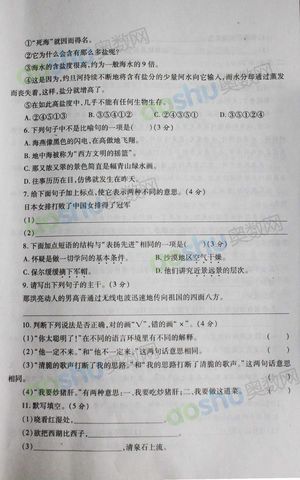 ①“死海”就因而得名。
②它为什么会含有那么多盐呢?
③海水的含盐度很高,约为一般海水的9倍。
④这是因为,约旦河持续不断地将含有盐分的少量河水向它输入,而水分却通过蒸发
而丧失着,这样,盐分就增高了。
⑤在如此高盐度中,几乎不能有任何生物生存。
A.②④⑤①③ B.③⑤①②④ C.②④③⑤① D.③⑤①④②
6.下列句子中不是比喻句的一项是( )(3分)
A.海燕像黑色的闪电,在高傲地飞翔。
B.地中海被称为“西方文明的摇篮”。
C.那又浓又翠的景色简直是幅青山绿水画。
D.往事历历在目,仿佛就发生在昨天。
7.给下面句子加上标点,使它表示两种不同的意思。(4分)
日本女排打败了中国女排得了冠军
(1)
(2)
8.下面加点短语的结构与“表扬先进”相同的一项是( )(3分)
A.怀疑是做一切学问的基本条件。 B.沙漠地区空气干燥。
C.保尔缓缓摘下军帽。 D.他们讲究近景远景的层次。
9.请写出下列句子的主干。(3分)
那洪亮动人的男高音通过无线电波迅速地传向祖国的四面八方。
10.判断下列说法是否正确,对的画“√”,错的画“×”。(4分)
(1)“你太聪明了!”在不同的语言环境里有不同的解释。 ( )
(2)“他一定不来。”和“他不一定来。”这两句话意思相同。 ( )
(3)“清脆的歌声打断了我的思路。”和“我的思路打断了清脆的歌声。”这两句话意思
相同。 ( )
(4)“我要炒猪肝。”有两种意思:一、我要吃炒猪肝;二、我要做这道菜。 ( )
11.默写填空。(5分)
(1)晓看红湿处,
(2)欲把西湖比西子,
(3) ,清泉石上流。
aoshu奥数网
aoshu奥数网
aoshu奥数网